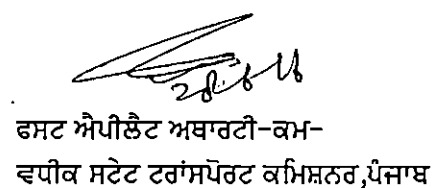 ਫਸਟ ਐਪੀਲੈਟ ਅਥਾਰਟੀ-ਕਮ-
ਵਧੀਕ ਸਟੇਟ ਟਰਾਂਸਪੋਰਟ ਕਮਿਸ਼ਨਰ,ਪੰਜਾਬ